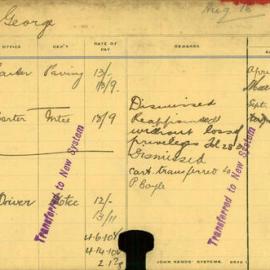 George
Aug 16
OFFICE
DEP'T
RATE OF PAY
REMARKS
Carter Paving 13/-
13/9
Dismissed
Carter 13/9
Reappointed
without loss of
privileges
Dismissed
Cart transferred to
P Boyle
Driver 12/-
13/11
4-6-10
4-14-10
Transferred to New System
Transferred to New System